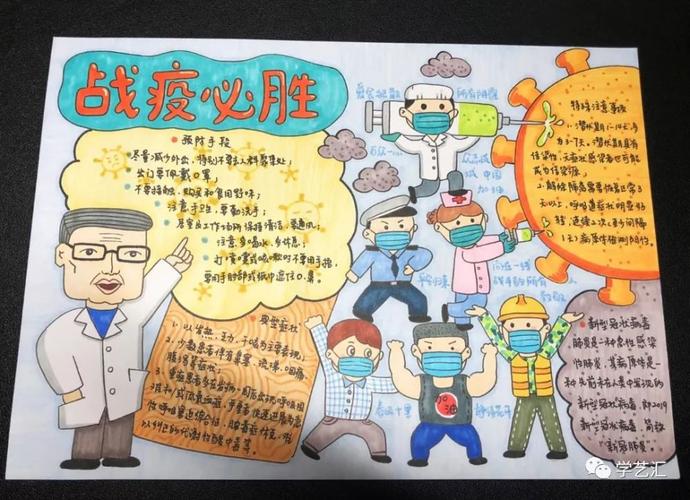 战疫必胜
预防手段
尽量减少外出,特别不要去人群聚集处;
出门要佩戴口罩;
不要接触,购买和食用野味;
注意手卫生,要勤洗手;
居室或工作场所保持清洁,要通风;
注意多喝水,多休息;
打喷嚏或咳嗽时不要用手捂,
要用手肘部或纸巾遮住口、鼻。
典型症状
1、以发热、乏力、干咳为主要表现,
2、少数患者伴有鼻塞、流涕、咽痛、
腹泻等症状;
愛会抵散
所有阴霾
众志成
城 中国
加油
特殊注意事项
1、潜伏期1-14天,多
为3-7天,潜伏期具有
传染性,无症状感染者也可能
成为传染源。
2、解除隔离需要体温正常3
天以上,呼吸道症状明显好
转,连续2次,至少间隔
1天)病原体检测阴性。
向在一线
战斗的所有
春暖十里
静待花开
加油
新型冠状病毒
肺炎是一种急性感染
性肺炎,其病原体是
一种先前未在人类中发现的
新型冠状病毒,即2019
新型冠状病毒,简称
“新冠肺炎”
学艺汇